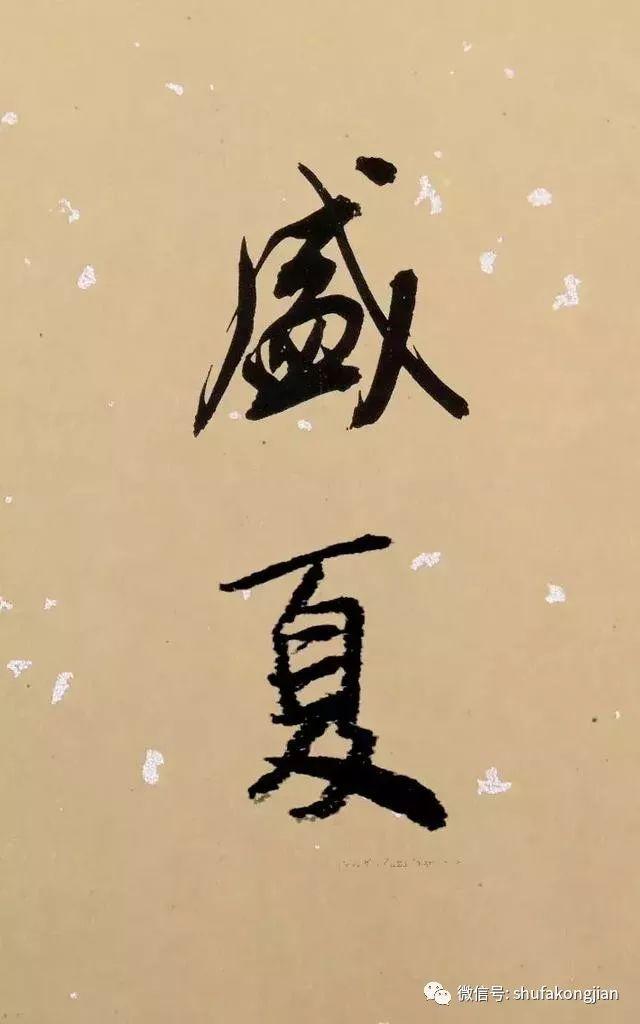 盛
夏
微信号: shufakongjian